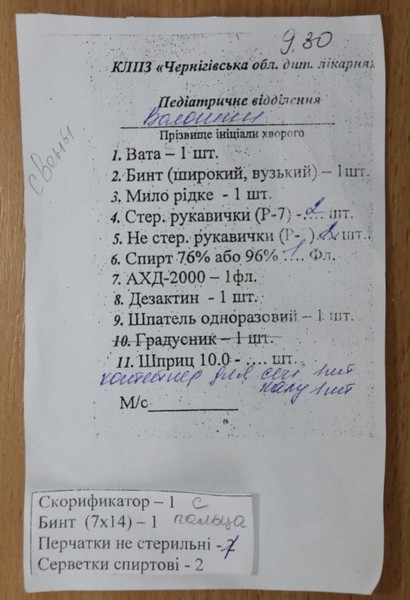 9.30
КЛПЗ «Чернігівська обл. дит. лікарня»
Педіатричне відділення
Прізвище ініціали хворого
1. Вата – 1 шт.
2. Бинт (широкий, вузький) – 1шт.
3. Мило рідке - 1 шт.
4. Стер. рукавички (Р-7) - 2 шт.
5. Не стер. рукавички (Р- ) 2 шт..
6. Спирт 76% або 96% 1 Фл.
7. АХД-2000 – 1фл.
8. Дезактин - 1 шт.
9. Шпатель одноразовий – 1 шт
10. Градусник – 1 шт.
11. Шприц 10.0 - .... шт.
контейнер для сечі 1шт
калу 1шт
М/с
Скорификатор – 1 с
Бинт (7х14) – 1 пальца
Перчатки не стерильні -
Серветки спиртові - 2